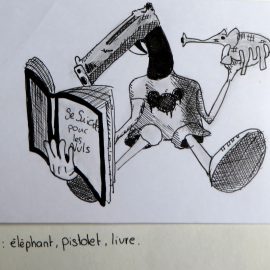 Le Suicide
pour
les
Nuls
: éléphant, pistolet, livre.